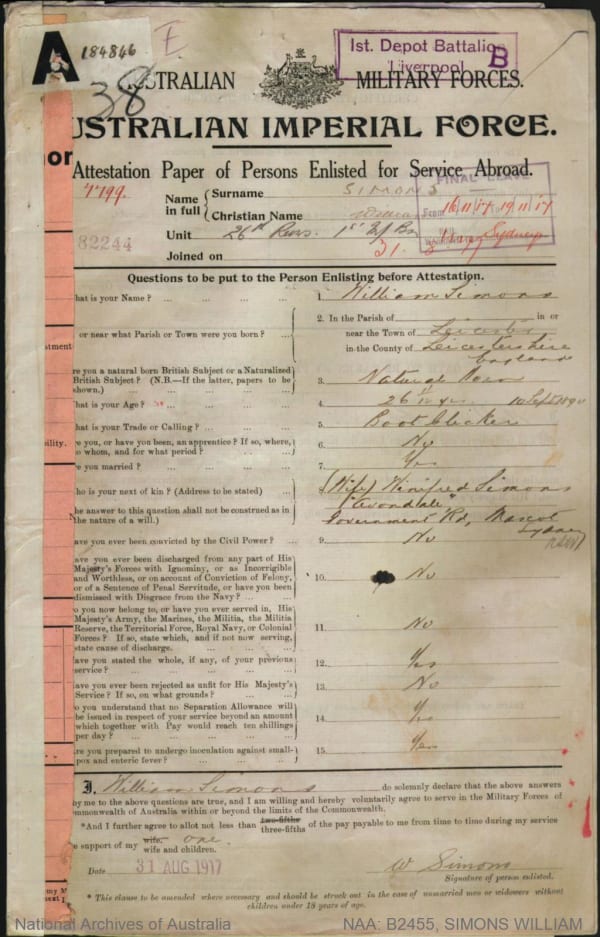 A
184846
E
38
1st. Depot Battalion
Liverpool
B
USTRALIAN MILITARY FORCES.
USTRALIAN IMPERIAL FORCE.
or
Attestation Paper of Persons Enlisted for Service Abroad.
7799.
FINAL LEAVE
Name in full
Surname SIMONS
Christian Name William
From 16/11/17 19/11/17
Unit 26th Rens. 1st
Sydney
82244
Joined on 31. 8
Questions to be put to the Person Enlisting before Attestation.
hat is your Name? ... 1. William Simons
or near what Parish or Town were you born? ... 2. In the Parish of in or
near the Town of Leicester
in the County of Leicestershire
England
stment
re you a natural born British Subject or a Naturalized
British Subject? (N.B.—If the latter, papers to be
shown.) ... 3. Natural Born
hat is your Age? ... 4. 26 10 Sept 1890
hat is your Trade or Calling? ... 5. Boot Clicker
bility.
re you, or have you been, an apprentice? If so, where,
o whom, and for what period? ... 6. No
re you married? ... 7. Yes
ho is your next of kin? (Address to be stated) ... (Wife) Winifred Simons
"Avondale"
he answer to this question shall not be construed as in
the nature of a will.) Government Rd, Mascot
Sydney
NSW
ave you ever been convicted by the Civil Power? ... 9. No
ave you ever been discharged from any part of His
Majesty's Forces with Ignominy, or as Incorrigible
and Worthless, or on account of Conviction of Felony,
or of a Sentence of Penal Servitude, or have you been
dismissed with Disgrace from the Navy? ... 10. No
o you now belong to, or have you ever served in, His
Majesty's Army, the Marines, the Militia, the Militia
Reserve, the Territorial Force, Royal Navy, or Colonial
Forces? If so, state which, and if not now serving,
state cause of discharge. ... 11. No
ave you stated the whole, if any, of your previous
service? ... 12. Yes
ave you ever been rejected as unfit for His Majesty's
Service? If so, on what grounds? ... 13. No
o you understand that no Separation Allowance will
be issued in respect of your service beyond an amount
which together with Pay would reach ten shillings
per day? ... 14. Yes
re you prepared to undergo inoculation against small-
pox and enteric fever? ... 15. Yes
I, William Simons do solemnly declare that the above answers
by me to the above questions are true, and I am willing and hereby voluntarily agree to serve in the Military Forces of
ommonwealth of Australia within or beyond the limits of the Commonwealth.
*And I further agree to allot not less than two-fifths three-fifths of the pay payable to me from time to time during my service
e support of my wife. one.
wife and children.
Date 31 AUG 1917
W Simons
Signature of person enlisted.
* This clause to be amended where necessary and should be struck out in the case of unmarried men or widowers without
children under 18 years of age.
National Archives of Australia NAA: B2455, SIMONS WILLIAM